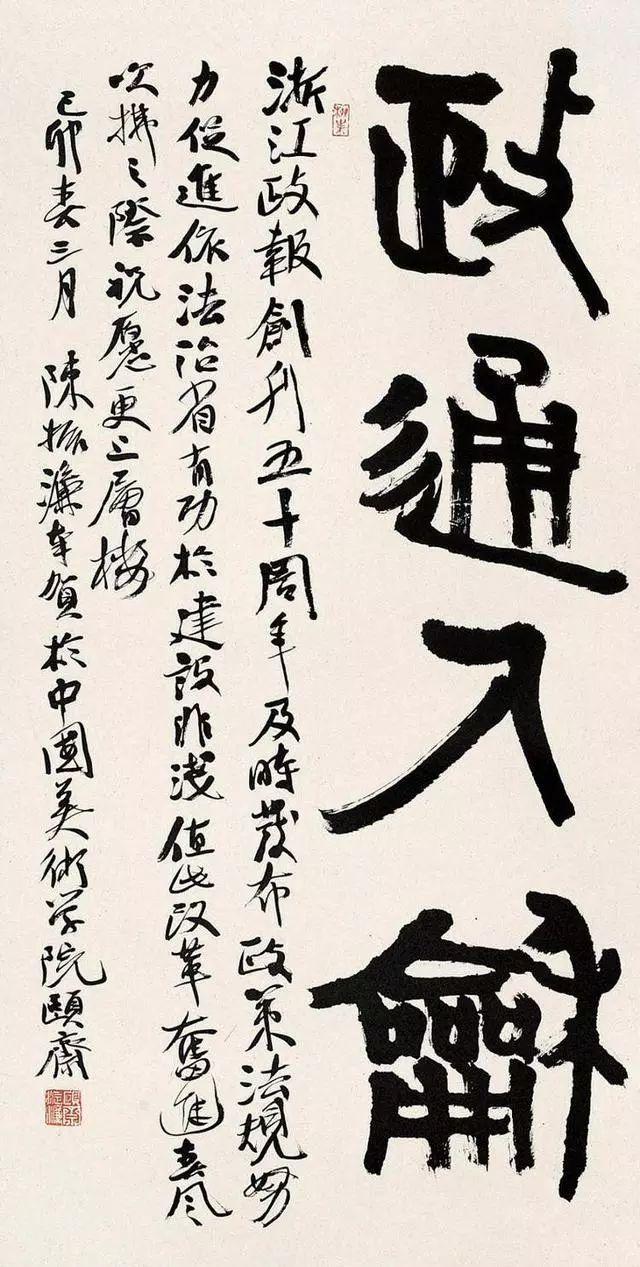 政通人龢
浙江政報創刊五十周年及時發布政策法規努
力促進依法治省有功於建設非淺值此改革奮進春风
吹拂之際祝愿更上層樓
己卯春三月 陳振濂奉賀於中國美術学院頤齋